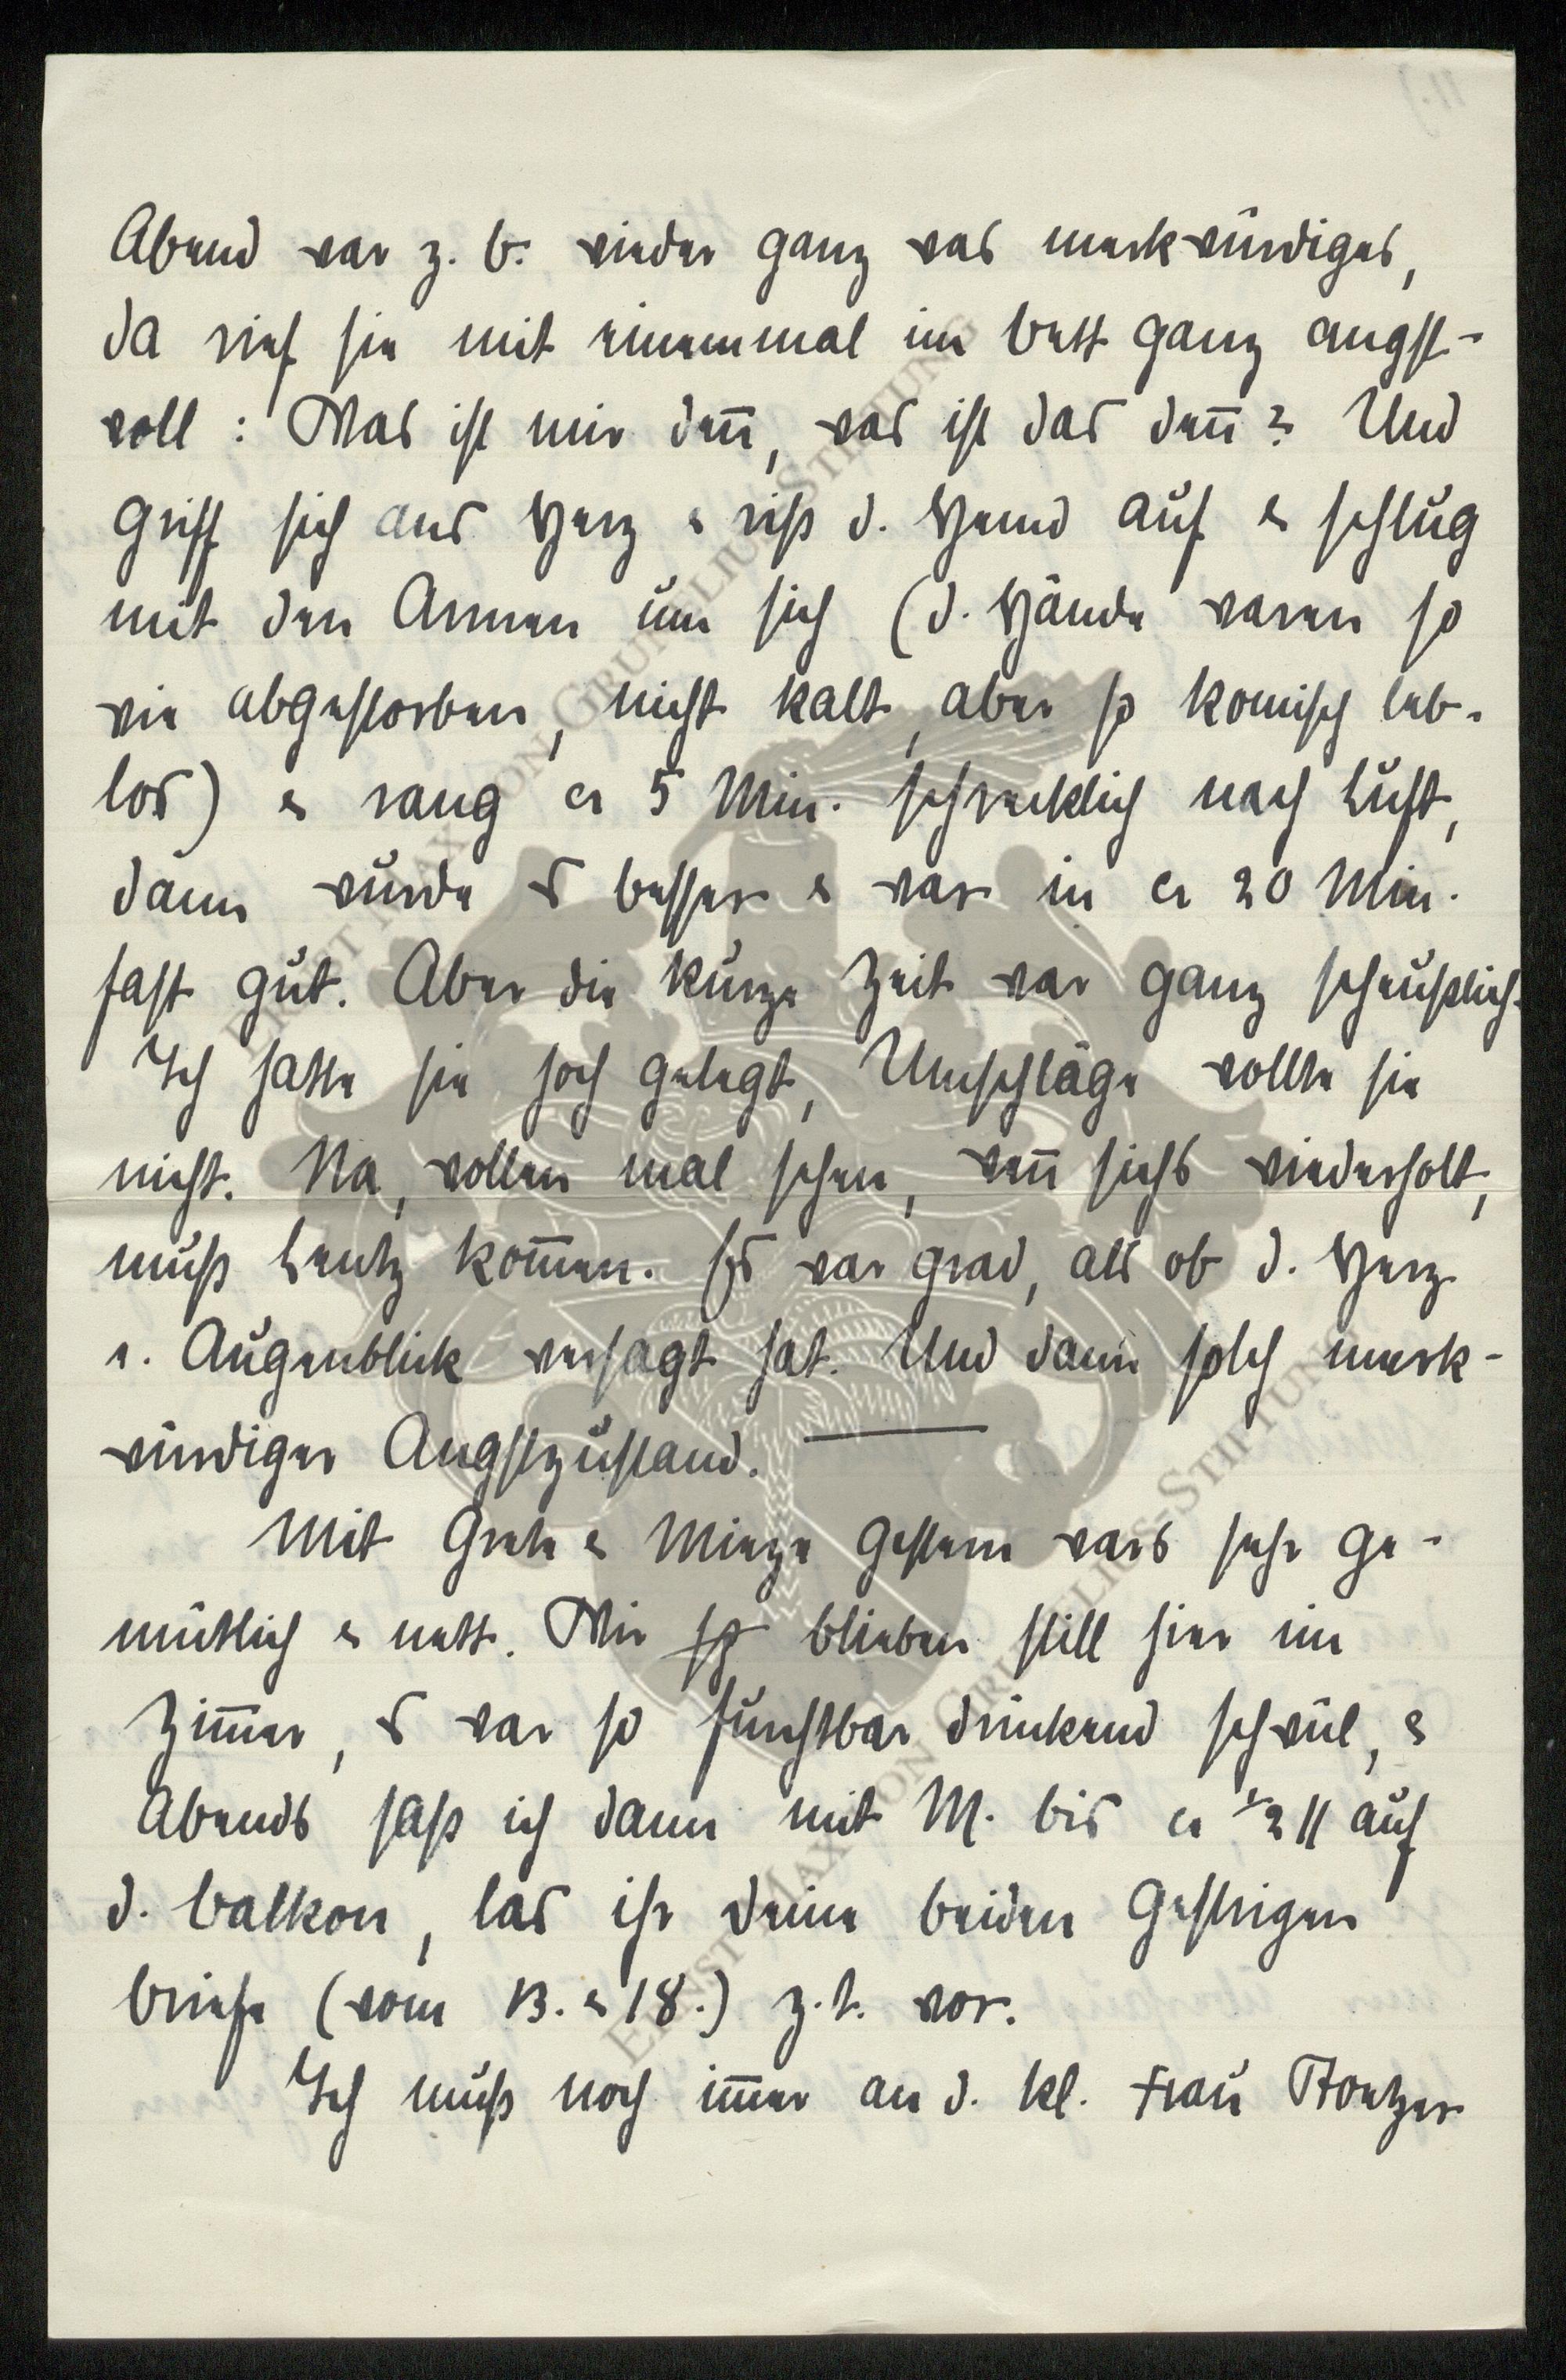 Abend war z. B. wieder ganz was merkwürdiges,
da rief sie mit einemmal im Bett ganz angst-
voll: Was ist mir deñ, was ist das deñ? Und
griff sich ans Herz & riß d. Hemd auf & schlug
mit den Armen um sich (d. Hände waren so
wie abgestorben, nicht kalt, aber so komisch leb-
los) & rang ca 5 Min. schrecklich nach Luft,
dann wurde es besser & war in ca 20 Min.
fast gut. Aber die kurze Zeit war ganz scheußlich.
Ich hatte sie hoch gelegt, Umschläge wollte sie
nicht. Na, wollen mal sehen, weñ sichs wiederholt,
muß Lentz kom̄en. Es war grad, als ob d. Herz
e. Augenblick versagt hat. Und dann solch merk-
würdiger Angstzustand. —
Mit Grete & Mieze gestern wars sehr ge-
mütlich & nett. Wir blieben still hier im
Zim̄er, es war so furchtbar drückend schwül, &
Abends saß ich dann mit M. bis ca ½ 11 auf
d. Balkon, las ihr Deine beiden gestrigen
Briefe (vom 13. & 18.) z. T. vor.
Ich muß noch im̄er an d. kl. Frau